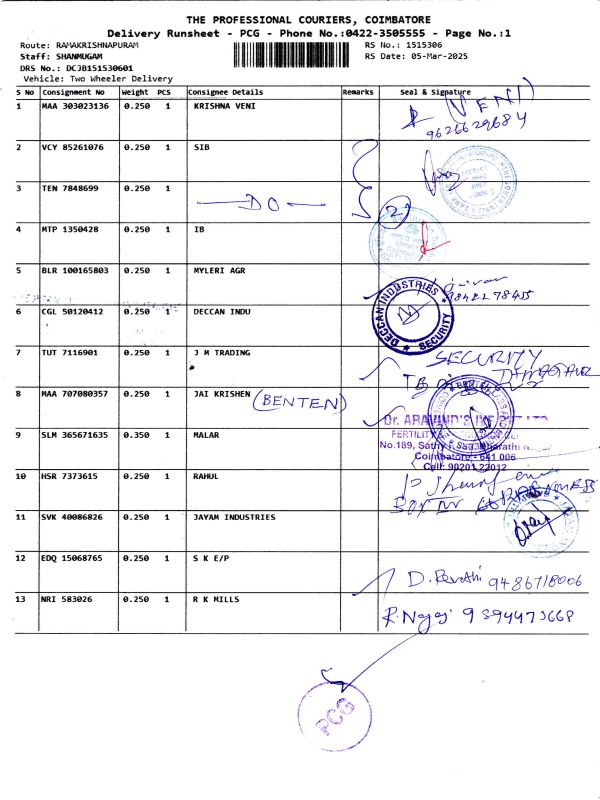 THE PROFESSIONAL COURIERS, COIMBATORE
Delivery Runsheet - PCG - Phone No.:0422-3505555 - Page No.:1
Route: RAMAKRISHNAPURAM RS No.: 1515306
Staff: SHANMUGAM RS Date: 05-Mar-2025
DRS No.: DCJB151530601
Vehicle: Two Wheeler Delivery
S No Consignment No Weight PCS Consignee Details Remarks Seal & Signature
1 MAA 303023136 0.250 1 KRISHNA VENI
(VENI)
9626629684
2 VCY 85261076 0.250 1 SIB
3 TEN 7848699 0.250 1
DO
2
4 MTP 1350428 0.250 1 IB
5 BLR 100165803 0.250 1 MYLERI AGR
DECCAN INDUSTRIES
SECURITY
6 CGL 50120412 0.250 1 DECCAN INDU
7 TUT 7116901 0.250 1 J M TRADING
SECURITY
8 MAA 707080357 0.250 1 JAI KRISHEN
(BENTEN)
Dr. ARAVIND'S
FERTILITY
No.189, Sathy
Coimbatore - 641 006
Cell: 90201 22012
9 SLM 365671635 0.350 1 MALAR
10 HSR 7373615 0.250 1 RAHUL
11 SVK 40086826 0.250 1 JAYAM INDUSTRIES
12 EDQ 15068765 0.250 1 S K E/P
D. Revathi 9486718006
13 NRI 583026 0.250 1 R K MILLS
PCG